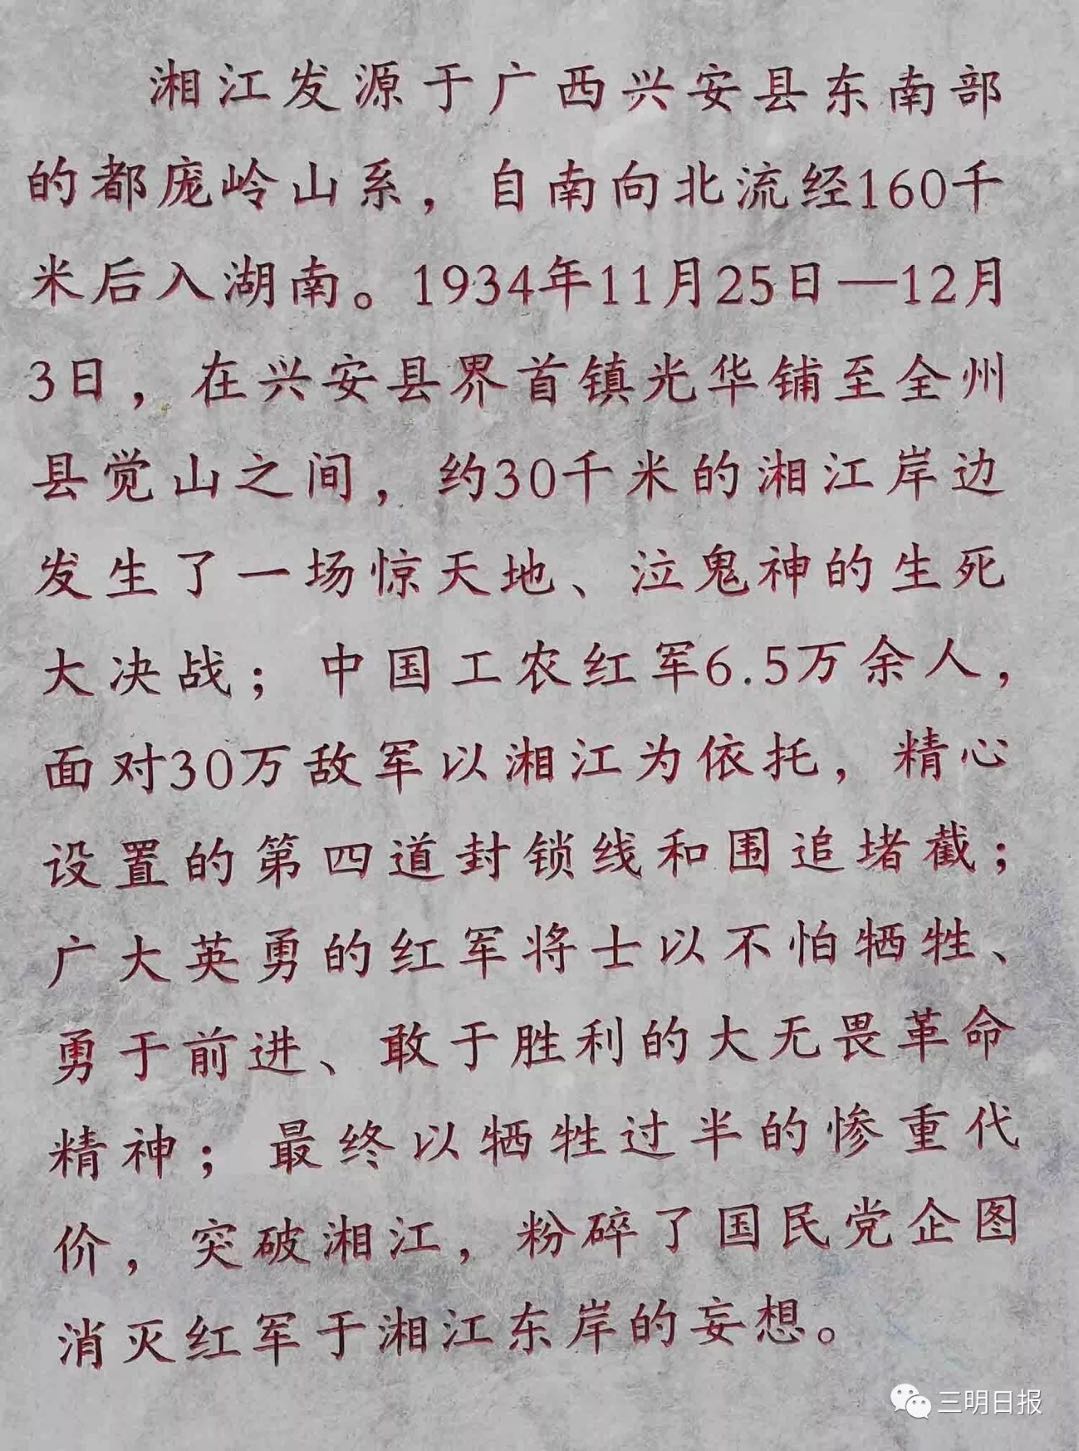 湘江发源于广西兴安县东南部
的都庞岭山系，自南向北流经160千
米后入湖南。1934年11月25日—12月
3日，在兴安县界首镇光华铺至全州
县觉山之间，约30千米的湘江岸边
发生了一场惊天地、泣鬼神的生死
大决战；中国工农红军6.5万余人，
面对30万敌军以湘江为依托，精心
设置的第四道封锁线和围追堵截；
广大英勇的红军将士以不怕牺牲、
勇于前进、敢于胜利的大无畏革命
精神；最终以牺牲过半的惨重代
价，突破湘江，粉碎了国民党企图
消灭红军于湘江东岸的妄想。
三明日报